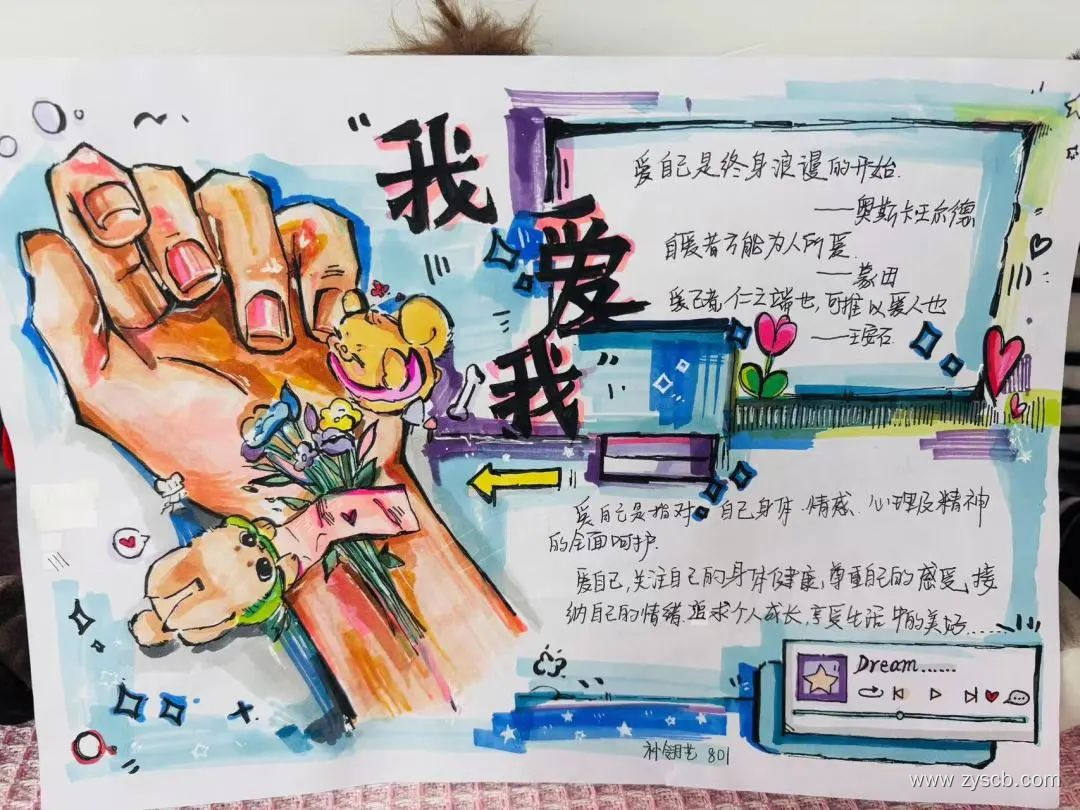 "我
爱
我"
爱自己是终身浪漫的开始.
——奥斯卡王尔德
自爱者方能为人所爱.
——蒙田
爱己者,仁之端也,可推以爱人也
——王安石
爱自己是指对自己身体.情感.心理及精神
的全面呵护.
爱自己,关注自己的身体健康,尊重自己的感受,接
纳自己的情绪.追求个人成长,享受生活中的美好......
Dream......
801
www.zyscb.com